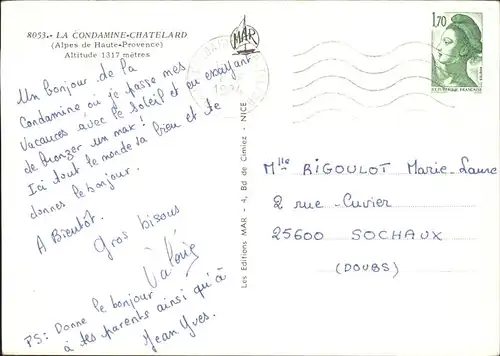 8053.- LA CONDAMINE-CHATELARD
(Alpes de Haute-Provence)
Altitude 1317 mètres
Un bonjour de la
Condamine où je passe mes
Vacances avec le soleil et en essayant
de bronzer un max!
Ici tout le monde va bien et te
donnes le bonjour.
A Bientôt.
Gros bisous
Valérie
PS: Donne le bonjour
à tes parents ainsi qu'à
Jean Yves.
MAR
Les Editions MAR - 4, Bd de Cimiez - NICE
1,70
REPUBLIQUE FRANÇAISE
Mlle RIGOULOT Marie-Laure
2 rue Cuvier
25600 SOCHAUX
(DOUBS)